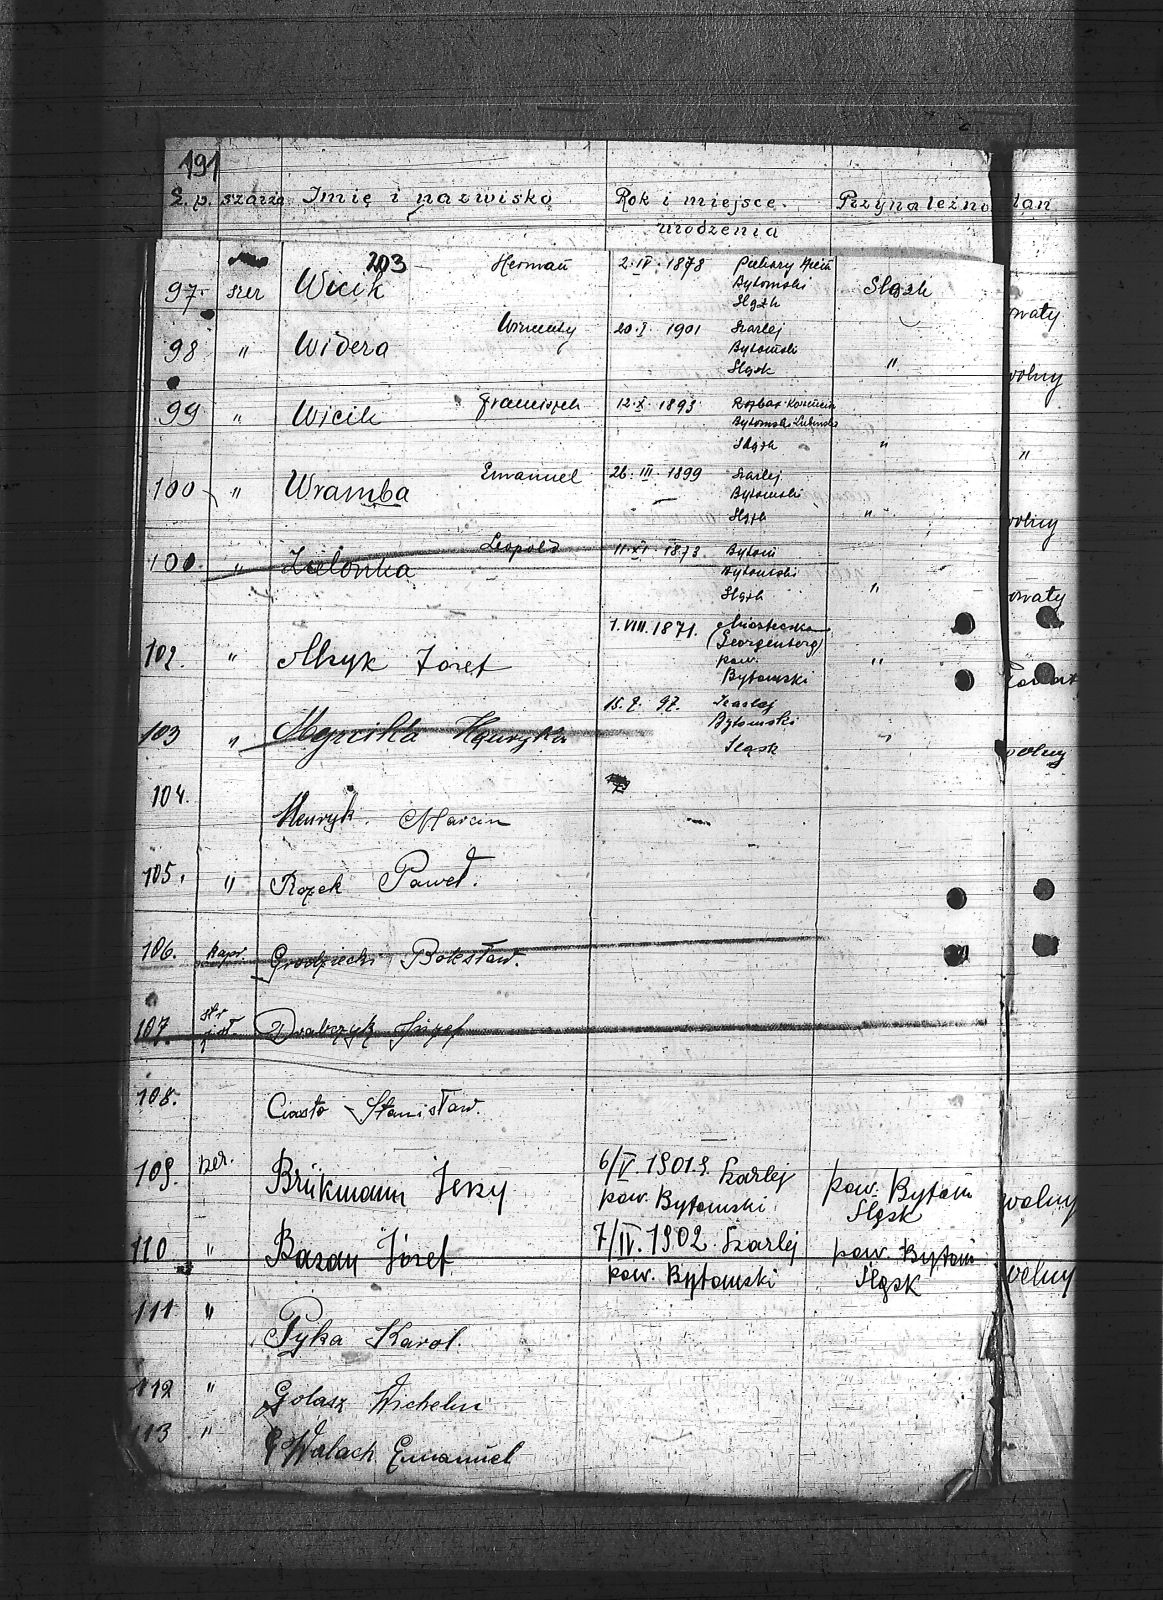 191
L. p. szarża Imię i nazwisko Rok i miejsce urodzenia Przynależno stan
203
97. szer Wicik Herman 2. IV. 1878 Piekary
Bytomski
Śląsk Śląsk
98 " Widera Wincenty 20. I. 1901 Szarlej
Bytomski
Śląsk " wolny
99 " Wicik Franciszek 12. X. 1893 Rozbark
Bytomski
Śląsk " "
100 " Wramba Emanuel 26. III. 1899 Szarlej
Bytomski
Śląsk " wolny
100. " Zielonka Leopold 11. XI. 1873. Bytom
Bytomski
Śląsk "
102. " Józef 1. VIII. 1871. Miasteczko
(Georgenberg)
pow.
Bytomski "
103 " 97. Szarlej
Bytomski
Śląsk " wolny
104. Henryk Marcin
105. " Rozek Paweł.
106. kapr. Grodziecki
107. Drabczyk Józef
108. Ciasto Stanisław.
109. szer. Brükmann Jerzy 6/V. 1901 Szarlej pow. Bytom wolny
pow. Bytomski Śląsk
110 " Bazan Józef 7/IV. 1902. Szarlej pow. Bytom wolny
pow. Bytomski Śląsk
111 " Pyka Karol.
112 " Golasz Wichelm
113 " Walach Emanuel